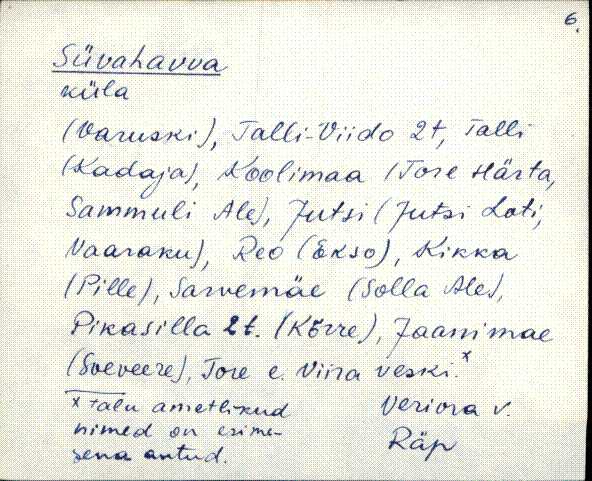 6.
Süvahavva
küla
(Varuski), Talli-Viido 2t, Talli
(Kadaja), Koolimaa (Tore Härta,
Sammuli Ale), Jutsi (Jutsi Loti,
Vaaraku), Reo (Ekso), Kikka
(Pille), Sarvemäe (Solla Ale),
Pikasilla 2t. (Kõrre), Jaanimae
(Soeveere), Tore e. Viira veski.x
x talu ametlikud
nimed on esime-
sena antud.
Veriora v.
Räp